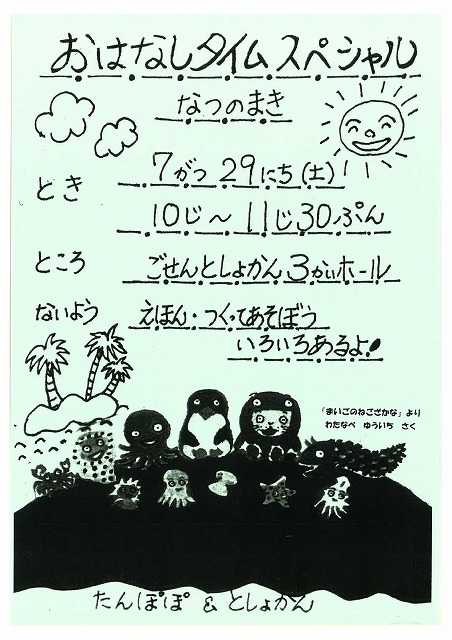 おはなしタイムスペシャル
なつのまき
とき 7がつ 29にち(土)
10じ～11じ30ぷん
ところ ごせんとしょかん 3かいホール
ないよう えほん・つくってあそぼう
いろいろあるよ!
「まいごのねこざかな」より
わたなべ ゆういち さく
たんぽぽ & としょかん